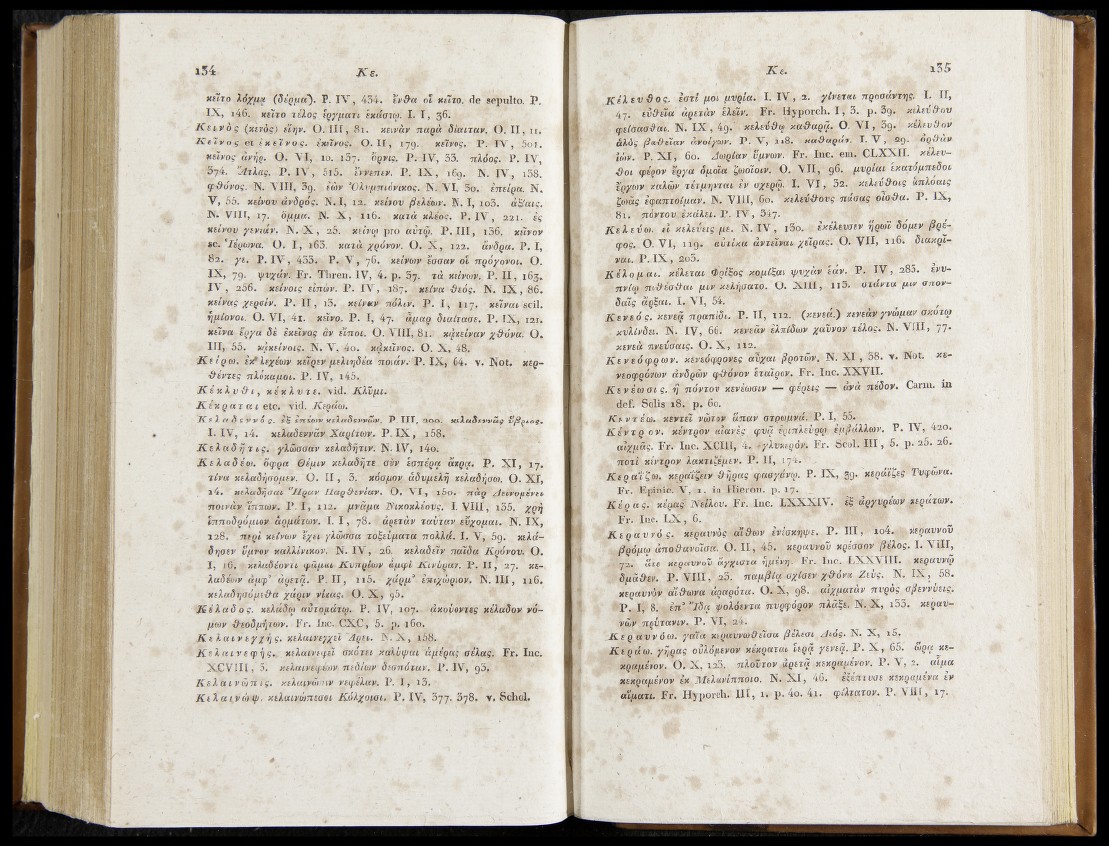 134
Κε.
κεῖτο λόχμα (δέρμα). P. IV, 434. ἔνθα οἱ κεῖτο. de sepulto. P.
IX, 146. κεῖτο τέλος ἔργματι ἑκάστῳ. I. I, 36.
Κεινὸς (κενὸς) εἴην. O. III, 81. κεινὰν παρὰ δίαιταν. O. II, 11.
Κεῖνος et ἐκεῖνος. ἐκεῖνος. O. II, 179. κεῖνος. P. IV, 501.
κεῖνος ἀνήρ. O. VI, 10. 137. ὄρνις. P. IV, 33. πλόος. P. IV,
374. Ἄτλας. P. IV, 515. ἔννεπεν. P. IX, 169. N. IV, 138.
φθόνος. N. VIII, 39. ἐὼν Ὀλυμπιόνικος. N. VI, 30. ἐπείρα. N.
V, 55. κείνου ἀνδρός. N. I, 12. κείνου βελέων. N. I, 103. ἀξίαις.
N. VIII, 17. ὄμμα. N. X, 116. κατὰ κλέος. P. IV, 221. ἐς
κείνου γενεάν. N. X, 25. κείνῳ pro αὐτῷ. P. III, 136. κεῖνον
sc. Ἱέρωνα. O. I, 163. κατὰ χρόνον. O. X, 122. ἄνδρα. P. I,
82. γε. P. IV, 433. P. V, 76. κείνων ἔσσαν οἱ πρόγονοι. O.
IX, 79. ψυχάν. Fr. Thren. IV, 4. p. 37. τὰ κείνων. P. II, 163.
IV, 256. κείνοις εἰπών. P. IV, 187. κείνα θεός. N. IX, 86.
κείνας χερσίν. P. II, 13. κείναν πόλιν. P. I, 117. κεῖναι scil.
ἡμίονοι. O. VI, 41. κεῖνο. P. I, 47. ἆμαρ διαίτασε. P. IX, 121.
κεῖνα ἔργα δὲ ἐκεῖνος ἂν εἴποι. O. VIII, 81. κἀκείναν χθόνα. O.
III, 55. κἀκείνοις. N. V, 40. κἀκεῖνος. O. X, 48.
Κείρω. ἐκ λεχέων κεῖρεν μελιηδέα ποιάν. P. IX, 64. v. Not. κερ-
θέντες πλόκαμοι. P. IV, 145.
Κέκλυθι, κέκλυτε. vid. Κλῦμι.
Κέκραται etc. vid. Κεράω.
I. IV, 14. κελαδεννᾶν Χαρίτων. P. IX, 158.
Κελαδῆτις. γλῶσσαν κελαδῆτιν. N. IV, 140.
Κελαδέω. ὄφρα Θέμιν κελαδῆτε σὺν ἑσπέρᾳ ἄκρᾳ. P. XI, 17.
τίνα κελαδήσομεν. O. II, 3. κόσμον ἁδυμελῆ κελαδήσω. O. XI,
14. κελαδῆσαι Ἥραν Παρθενίαν. O. VI, 150. πὰρ Δεινομένει
ποινὰν ἵππων. P. I, 112. μνᾶμα Νικοκλέους. I. VIII, 135. χρὴ
ἱπποδρόμιον ἁρμάτων. I. I, 78. ἀρετὰν ταύταν εὔχομαι. N. IX,
128. περὶ κείνων ἔχει γλῶσσα τοξεύματα πολλά. I. V, 59. κελά-
δησεν ὕμνον καλλίνικον. N. IV, 26. κελαδεῖν παῖδα Κρόνου. O.
I, 16. κελαδέοντι φᾶμαι Κυπρίων ἀμφὶ Κινύραν. P. II, 27. κε-
λαδέων ἀμφ' ἀρετᾷ. P. II, 115. χάρμ' ἐπιχώριον. N. III, 116.
κελαδησόμεθα χάριν νίκας. O. X, 95.
Κέλαδος. κελάδῳ αὐτομάτῳ. P. IV, 107. ἀκούοντες κέλαδον νό-
μων θεοδμήτων. Fr. Inc. CXC, 5. p. 160.
Κελαινεγχής. κελαινεγχεῖ Ἄρει. N. X, 158.
Κελαινεφής. κελαινεφεῖ σκότει καλύψαι ἁμέρας σέλας. Fr. Inc.
XCVIII, 3. κελαινεφέων πεδίων δεσπόταν. P. IV, 93.
Κελαινῶπις. κελαινῶπιν νεφέλαν. P. I, 13.
Κελαινώψ. κελαινώπεσσι Κόλχοισι. P. IV, 377. 378. v. Schol.
Κε.
135
Κέλευθος. ἐστί μοι μυρία. I. IV, 2. γίνεται προσάντης. I. II,
47. εὐθεῖα ἀρετὰν ἑλεῖν. Fr. Hyporch. I, 3. p. 39. κελεύθου
φείσασθαι. N. IX, 49. κελεύθῳ καθαρᾷ. O. VI, 39. κέλευθον
ἁλὸς βαθεῖαν ἀνοίγων. P. V, 118. καθαράν. I. V, 29. ὀρθὰν
ἰών. P. XI, 60. Δωρίαν ὕμνων. Fr. Inc. em. CLXXII. κέλευ-
θοι φέρον ἔργα ὁμοῖα ζωοῖσιν. O. VII, 96. μυρίαι ἑκατόμπεδοι
ἔργων καλῶν τέτμηνται ἐν σχερῷ. I. VI, 32. κελεύθοις ἁπλόαις
ζωᾶς ἐφαπτοίμαν. N. VIII, 60. κελεύθους πάσας οἶσθα. P. IX,
81. πόντου ἐκάλει. P. IV, 347.
Κελεύω. εἰ κελεύεις με. N. IV, 130. ἐκέλευσεν ἥρωϊ δόμεν βρέ-
φος. O. VI, 119. αὐτίκα ἀντεῖναι χεῖρας. O. VII, 116. διακρῖ-
ναι. P. IX, 203.
Κέλομαι. κέλεται Φρίξος κομίξαι ψυχὰν ἑάν. P. IV, 283. ἐνυ-
πνίῳ πιθέσθαι μιν κελήσατο. O. XIII, 113. στάντα μιν σπον-
δαῖς ἄρξαι. I. VI, 54.
Κενεός. κενεᾷ πραπίδι. P. II, 112. (κενεά.) κενεὰν γνώμαν σκότῳ
κυλίνδει. N. IV, 66. κενεᾶν ἐλπίδων χαῦνον τέλος. N. VIII, 77.
κενεὰ πνεύσαις. O. X, 112.
Κενεόφρων. κενεόφρονες αὖχαι βροτῶν. N. XI, 38. v. Not. κε-
νεοφρόνων ἀνδρῶν φθόνον ἑταῖρον. Fr. Inc. XXVII.
Κενέωσις. ἢ πόντου κενέωσιν — φέρεις — ἀνὰ πέδον. Carm. in
def. Solis 18. p. 60.
Κεντέω. κεντεῖ νῶτον ἅπαν στρωμνά. P. I, 55.
Κέντρον. κέντρον αἰανὲς φυᾷ ἐριπλεύρῳ ἐμβάλλων. P. IV, 420.
αἰχμᾶς. Fr. Inc. XCIII, 4. γλυκερόν. Fr. Scol. III, 5. p. 25. 26.
ποτὶ κέντρον λακτιζέμεν. P. II, 174.
Κεραΐζω. κεραΐζειν θῆρας φασγάνῳ. P. IX, 39. κεράϊζες Τυφῶνα.
Fr. Epinic. V, 1. in Hieron. p. 17.
Κέρας. κέρας Νείλου. Fr. Inc. LXXXIV. ἐξ ἀργυρέων κεράτων.
Fr. Inc. LX, 6.
Κεραυνός. κεραυνὸς αἴθων ἐνίσκηψε. P. III, 104. κεραυνοῦ
βρόμῳ ἀποθανοῖσα. O. II, 45. κεραυνοῦ κρέσσον βέλος. I. VIII,
72. ἅτε κεραυνοῦ ἄγχιστα ἡμένη. Fr. Inc. LXXVIII. κεραυνῷ
δμᾶθεν. P. VIII, 25. παμβίᾳ σχίσεν χθόνα Ζεύς. N. IX, 58.
κεραυνὸν αἴθωνα ἀραρότα. O. X, 98. αἰχματὰν πυρὸς σβεννύεις.
P. I, 8. ἐπ' Ἴδᾳ ψολόεντα πυρφόρον πλᾶξε. N. X, 133. κεραυ-
νῶν πρύτανιν. P. VI, 24.
Κεραυνόω. γαῖα κεραυνωθεῖσα βέλεσι Διός. N. X, 15.
Κεράω. γῆρας οὐλόμενον κέκραται ἱερᾷ γενεᾷ. P. X, 65. ὥρᾳ κε-
κραμένον. O. X, 123. πλοῦτον ἀρετᾷ κεκραμένον. P. V, 2. αἷμα
κεκραμένον ἐκ Μελανίπποιο. N. XI, 46. ἐξέπτυσε κεκραμένα ἐν
αἵματι. Fr. Hyporch. III, 1. p. 40. 41. φίλτατον. P. VIII, 17.